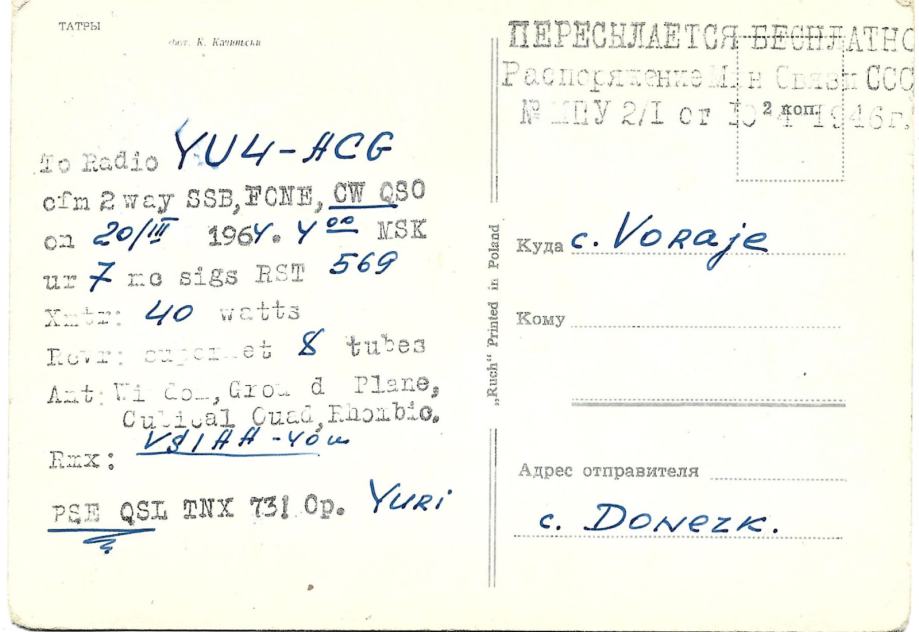 ТАТРЫ
Фот. К. Качиньски
To Radio YU4-ACG
cfm 2 way SSB, FONE, CW QSO
on 20/III 1964. 4 00 MSK
ur 7 mc sigs RST 569
Xmtr: 40 watts
Rcvr: superhet 8 tubes
Ant: Windom, Ground Plane,
Cubical Quad, Rhombic.
Rmx:
PSE QSL TNX 73! Op. YURI
„Ruch" Printed in Poland
ПЕРЕСЫЛАЕТСЯ БЕСПЛАТНО
Распоряжение Мин Связи СССР
№ МПУ 2/I от 1946г.
2 коп.
Куда c. Voraje
Кому
Адрес отправителя
c. Donezk.